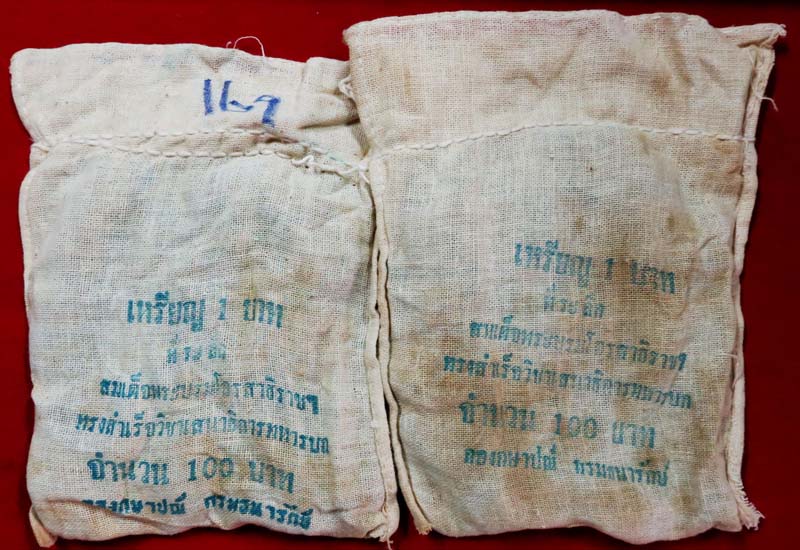 เหรียญ 1 บาท
ที่ระลึก
สมเด็จพระบรมโอรสาธิราชฯ
ทรงสำเร็จวิชาเสนาธิการทหารบก
จำนวน 100 บาท
กองกษาปณ์ กรมธนารักษ์
เหรียญ 1 บาท
ที่ระลึก
สมเด็จพระบรมโอรสาธิราชฯ
ทรงสำเร็จวิชาเสนาธิการทหารบก
จำนวน 100 บาท
กองกษาปณ์ กรมธนารักษ์